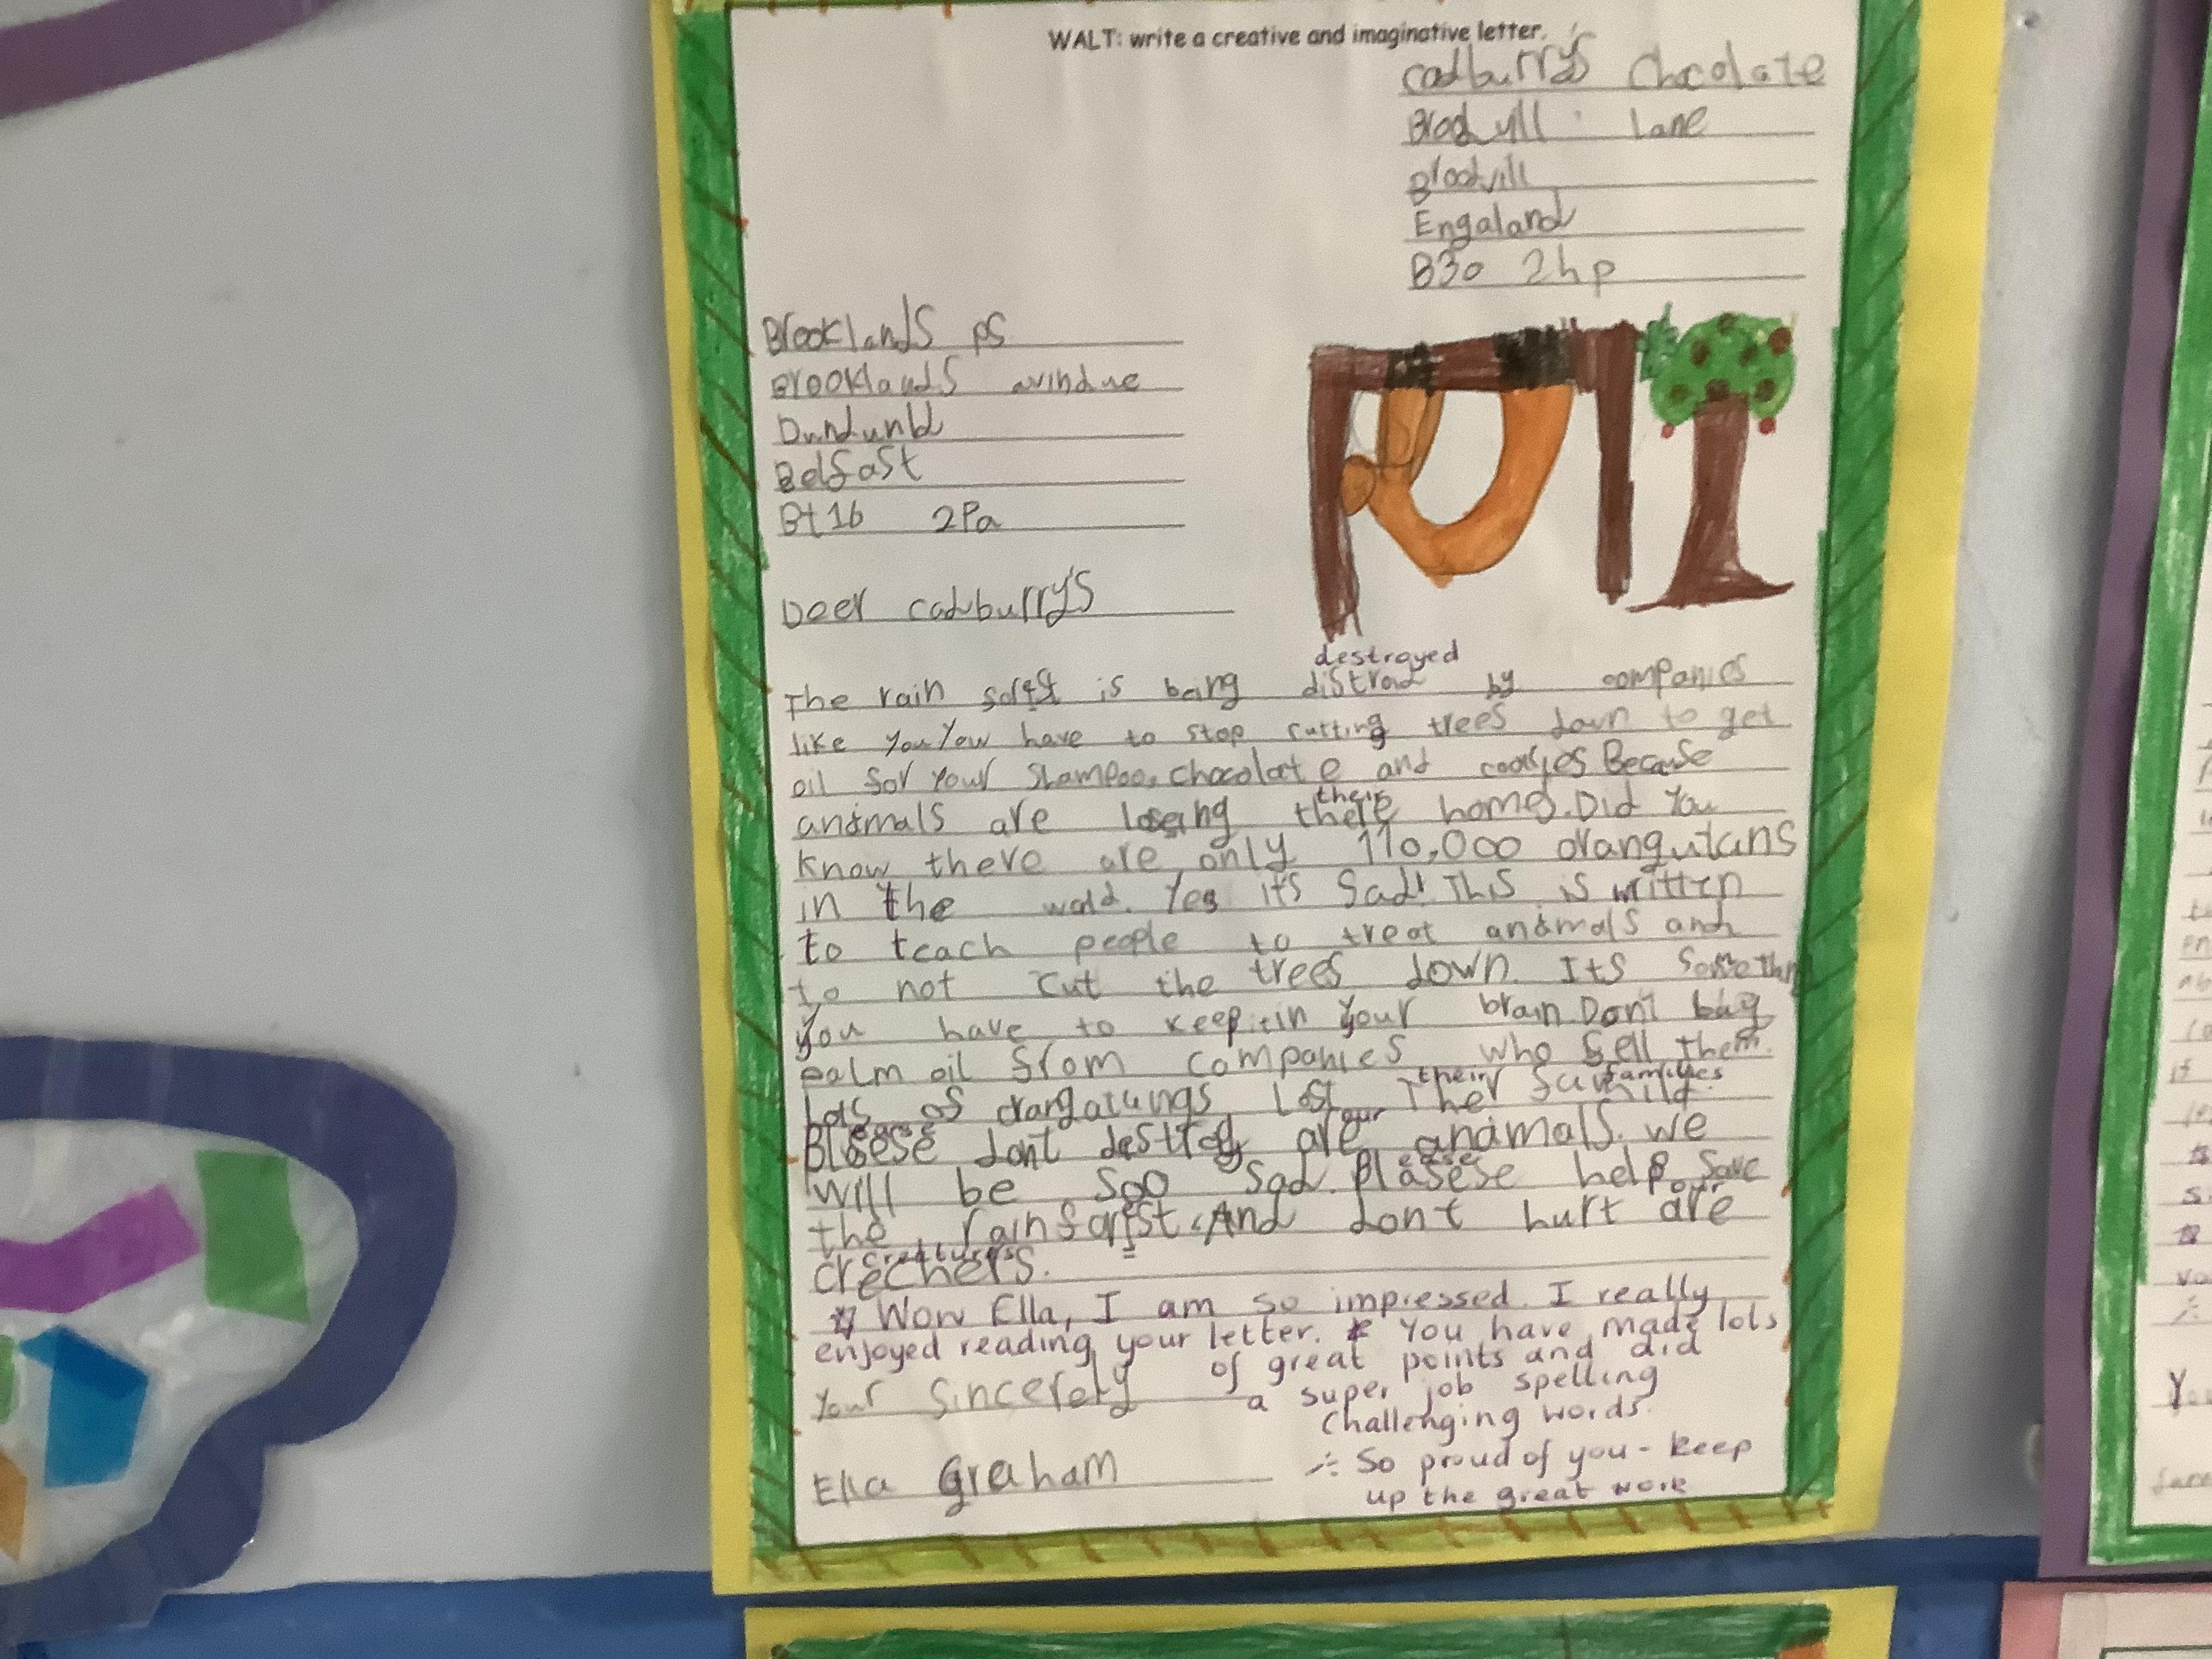 WALT: write a creative and imaginative letter.
cadburry's Chocolate
Lane
Engaland
B30 2hp
Brooklands ps
Brooklands avindue
Dundunld
Belfast
Bt16 2Pa
Deer cadburry's
destroyed
The rain is being distrod by companies
like you You have to stop cutting trees down to get
oil for your Shampoo, chocolate and cookies Because
their
animals are losing there homes. Did You
know there are only 110,000 orangutans
in the wald. Yes it's Sad! This is written
to teach people to treat animals and
to not cut the trees down. Its Somethin
you have to keep in your brain Don't bug
palm oil from companies who sell them.
their families
Lots of orangatungs Lost Ther
ease our
Blesese don't destroy are animals. we
ease
will be soo sad. Plasese help Save
our
the rainforist. And don't hurt are
creatures
crechers.
Wow Ella, I am so impressed. I really
enjoyed reading your letter. You have made lots
of great points and did
a super job spelling
challenging words.
Your Sincerely
So proud of you - keep
up the great work
Ella Graham